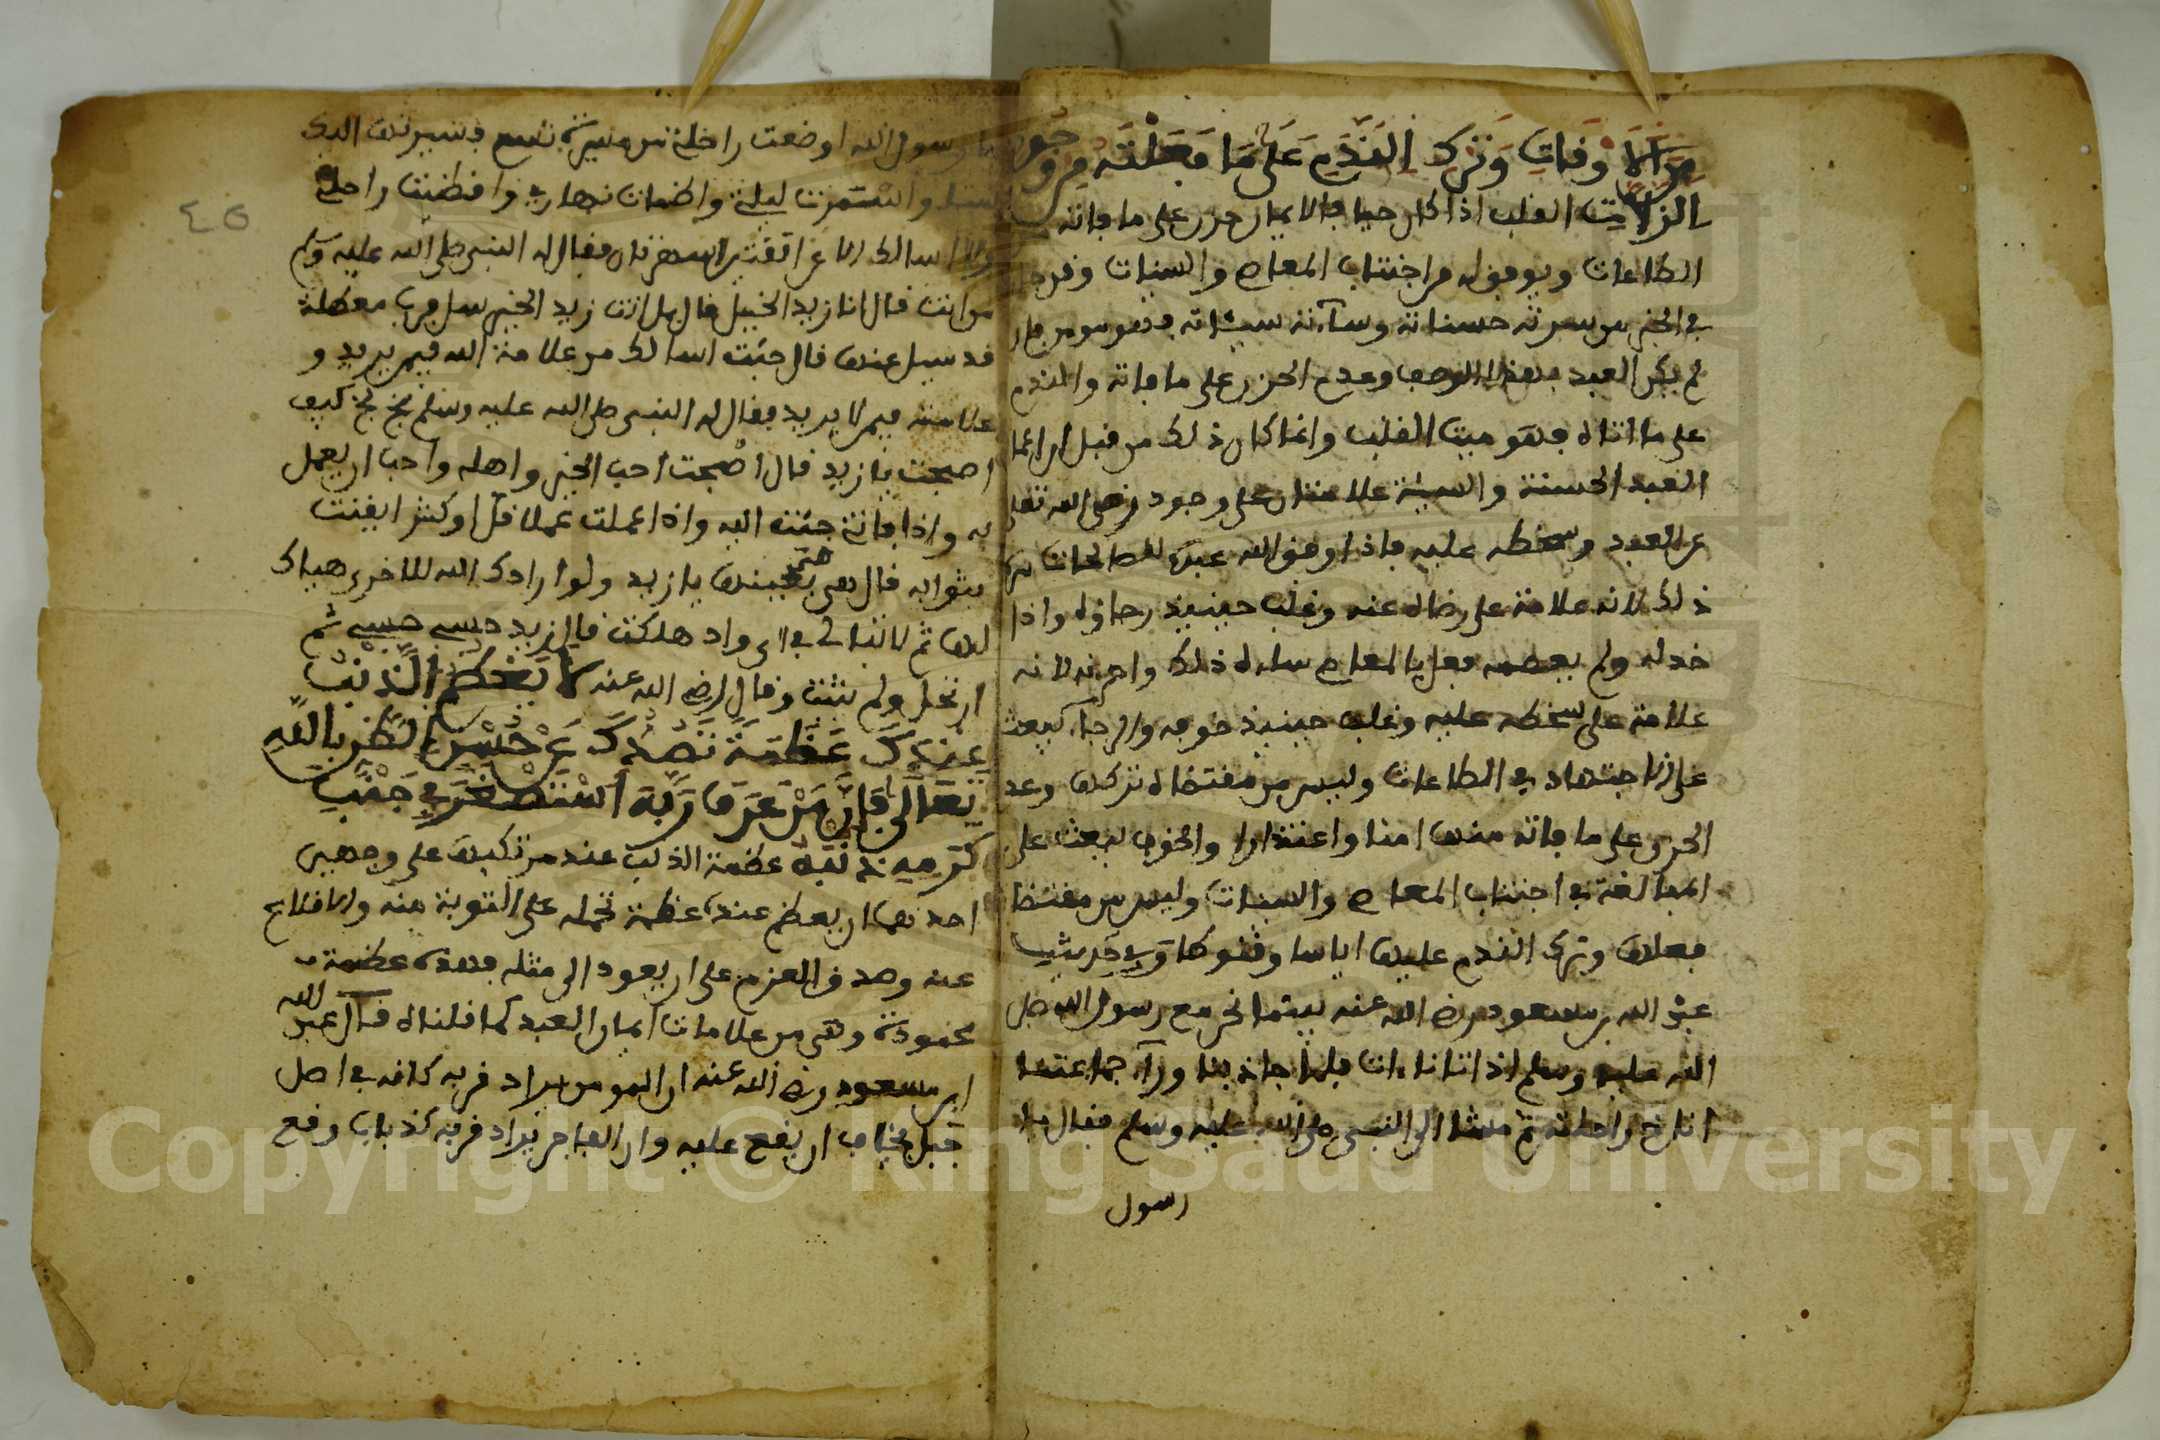 من الموافقات وترك الندم على ما فعلته من وجود
الزلات القلب اذا كان حيا بالايمان حزن على ما فاته من
الطاعات ويوفوله من اجتناب المعاصي والسيات وفرح
في الخبر من سرته حسناته وساءته سيئاته فهو مومن فان
لم يكن العبد بهذا الوصف وعدم الحزن على ما فاته والندم
على ما اتاه فهو ميت القلب وانما كان ذلك من قبل ان اعمال
العبد الحسنة والسيئة علامتان على وجود رضى الله تعلى
عن العبد وسخطه عليه فاذا وفق الله عبده للصالحات سره
ذلك لانه علامة على رضاه عنه وغلب حينيذ رجاؤه واذا
خذله ولم يعصمه فعمل بالمعاصي ساءه ذلك واحزنه لانه
علامة على سخطه عليه وغلب حينيذ خوفه والرجا يبعث
على الاجتهاد في الطاعات وليس من مقتضاه تركها وعدم
الحزن على ما فاته منها امنا واغترارا والخوف يبعث على
المبالغة في اجتناب المعاصي والسيات وليس من مقتضا
فعلها وترك الندم عليها اياسا وقنوطا وفي حديث
عبد الله بن مسعود رضي الله عنه بينما نحن مع رسول الله صلى
الله عليه وسلم اذ اتانا ات فلما حاذ بنا وراء جماعتنا
اناخ راحلته ثم مشا الى النبي صلى الله عليه وسلم فقال يا
رسول
يا رسول الله اوضعت راحلتي من مسيرة تسع فسيرتها اليك
ستا واسهرت ليلي واظمات نهاري وانضيت راحلتي
لاسالك عن اثنتين اسهرتاني فقال له النبي صلى الله عليه وسلم
من انت قال انا زيد الخيل قال بل انت زيد الخير سل فرب معضلة
قد سيل عنها قال جئت اسالك عن علامة الله فيمن يريد و
علامته فيمن لا يريد فقال له النبي صلى الله عليه وسلم بخ بخ كيف
اصبحت يا زيد قال اصبحت احب الخير واهله واحب ان يعمل
به واذا فاتني حننت اليه واذا عملت عملا قل او كثر ايقنت
بثوابه قال هي هي بعينها يا زيد ولو ارادك الله للاخرى هياك
لها ثم لا يبالي في اي واد هلكت قال زيد حسبي حسبي ثم
ارتحل ولم يثبت وقال رضي الله عنه لا يعظم الذنب
عندك عظمة تصدك عن حسن الظن بالله
تعالى فان من عرف ربه استصغر في جنب
كرمه ذنبه عظمة الذنب عند مرتكبه على وجهين
احدهما ان يعظم عنده عظمة تحمله على التوبة منه والاقلاع
عنه وصدق العزم على ان لا يعود الى مثله فهذه عظمة
محمودة وهي من علامات ايمان العبد كما قلناه قال عبد الله
ابن مسعود رضي الله عنه ان المومن يرى ذنوبه كانه في اصل
جبل يخاف ان يقع عليه وان الفاجر يرى ذنوبه كذباب وقع
٤٥
Copyright © King Saud University